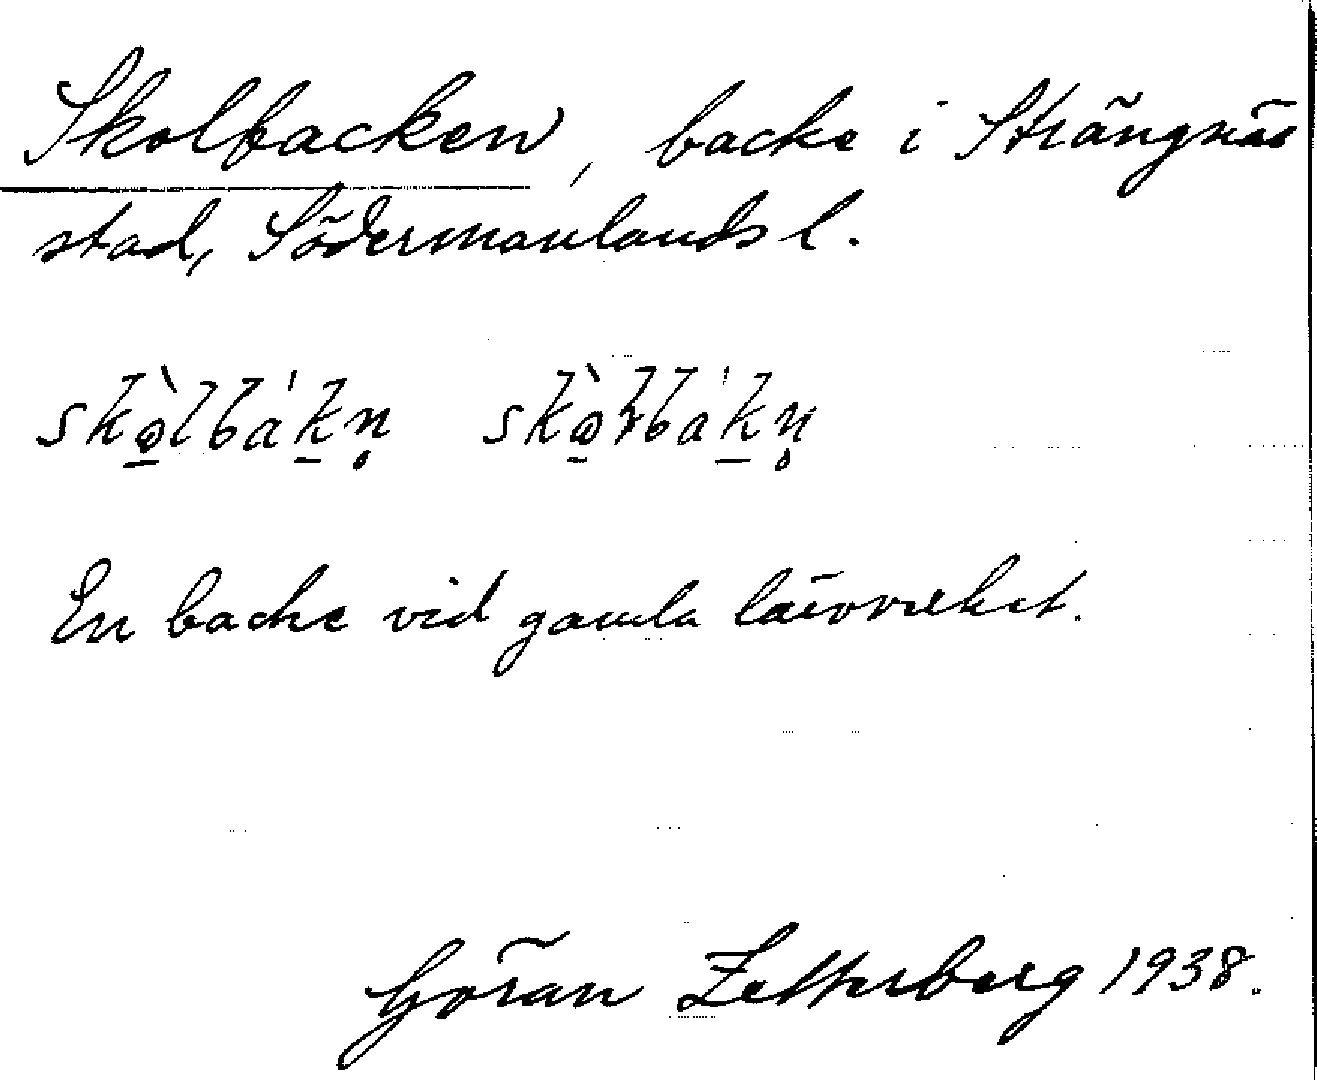 Skolbacken, backe i Strängnäs
stad, Södermanlands l.
skò̱lbaʹḵn̥ skò̱ɽbaʹḵn̥
En backe vid gamla läroverket.
Göran Zetterberg 1938.